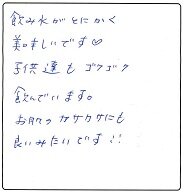 飲み水がとにかく
美味しいです♡
子供達もゴクゴク
飲んでいます。
お肌のカサカサにも
良いみたいです!!